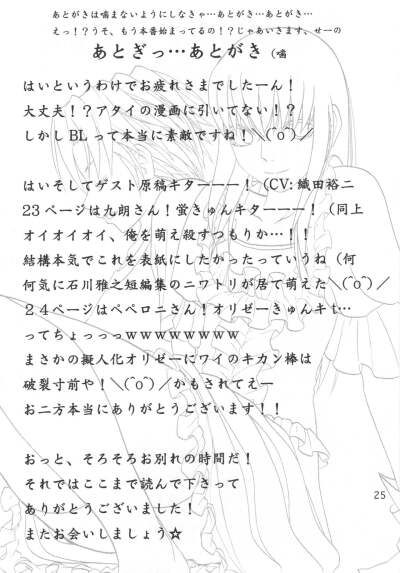 あとがきは噛まないようにしなきゃ…あとがき…あとがき…
えっ！？うそ、もう本番始まってるの！？じゃあいきます、せーの
あとぎっ…あとがき（噛
はいというわけでお疲れさまでしたーん！
大丈夫！？アタイの漫画に引いてない！？
しかしBLって本当に素敵ですね！＼(^o^)／
はいそしてゲスト原稿キターーー！（CV:織田裕二
23ページは九朗さん！蛍きゅんキターーー！（同上
オイオイオイ、俺を萌え殺すつもりか…！！
結構本気でこれを表紙にしたかったっていうね（何
何気に石川雅之短編集のニワトリが居て萌えた＼(^o^)／
24ページはペペロニさん！オリゼーきゅんキt…
ってちょっっっｗｗｗｗｗｗｗｗ
まさかの擬人化オリゼーにワイのキカン棒は
破裂寸前や！＼(^o^)／かもされてえー
お二方本当にありがとうございます！！
おっと、そろそろお別れの時間だ！
それではここまで読んで下さって
ありがとうございました！
またお会いしましょう☆
25